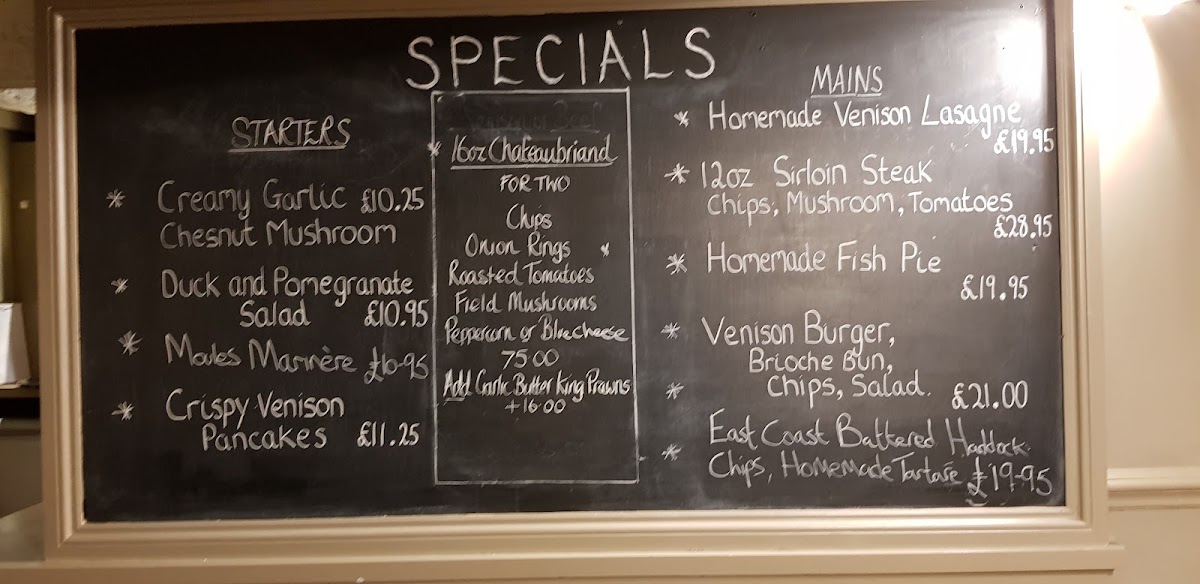 SPECIALS
STARTERS
* Creamy Garlic £10.25
Chesnut Mushroom
* Duck and Pomegranate
Salad £10.95
* Moules Marinère £10-95
* Crispy Venison
Pancakes £11.25
* 16oz Chateaubriand
FOR TWO
Chips
Onion Rings *
Roasted Tomatoes
Field Mushrooms
Peppercorn or Bluecheese
75.00
Add Garlic Butter King Prawns
+16.00
MAINS
* Homemade Venison Lasagne
£19.95
* 12oz Sirloin Steak
Chips, Mushroom, Tomatoes
£28.95
* Homemade Fish Pie
£19.95
* Venison Burger,
Brioche Bun,
* Chips, Salad. £21.00
East Coast Battered Haddock
* Chips, Homemade Tartare £19-95